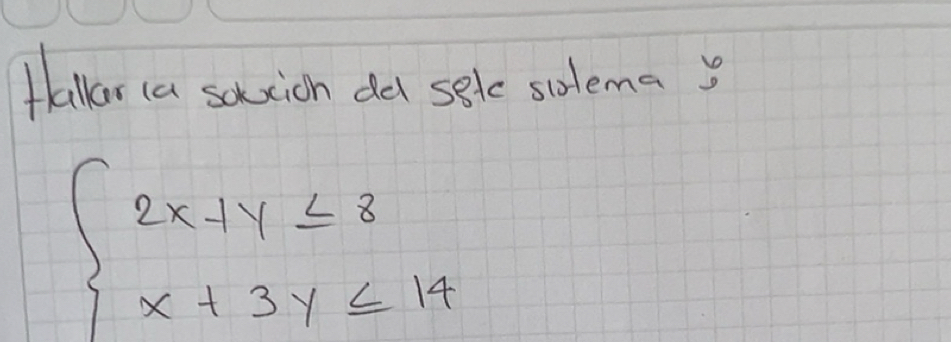 Hallar la solución del sgte sistema :
2x + y ≤ 8
x + 3y ≤ 14